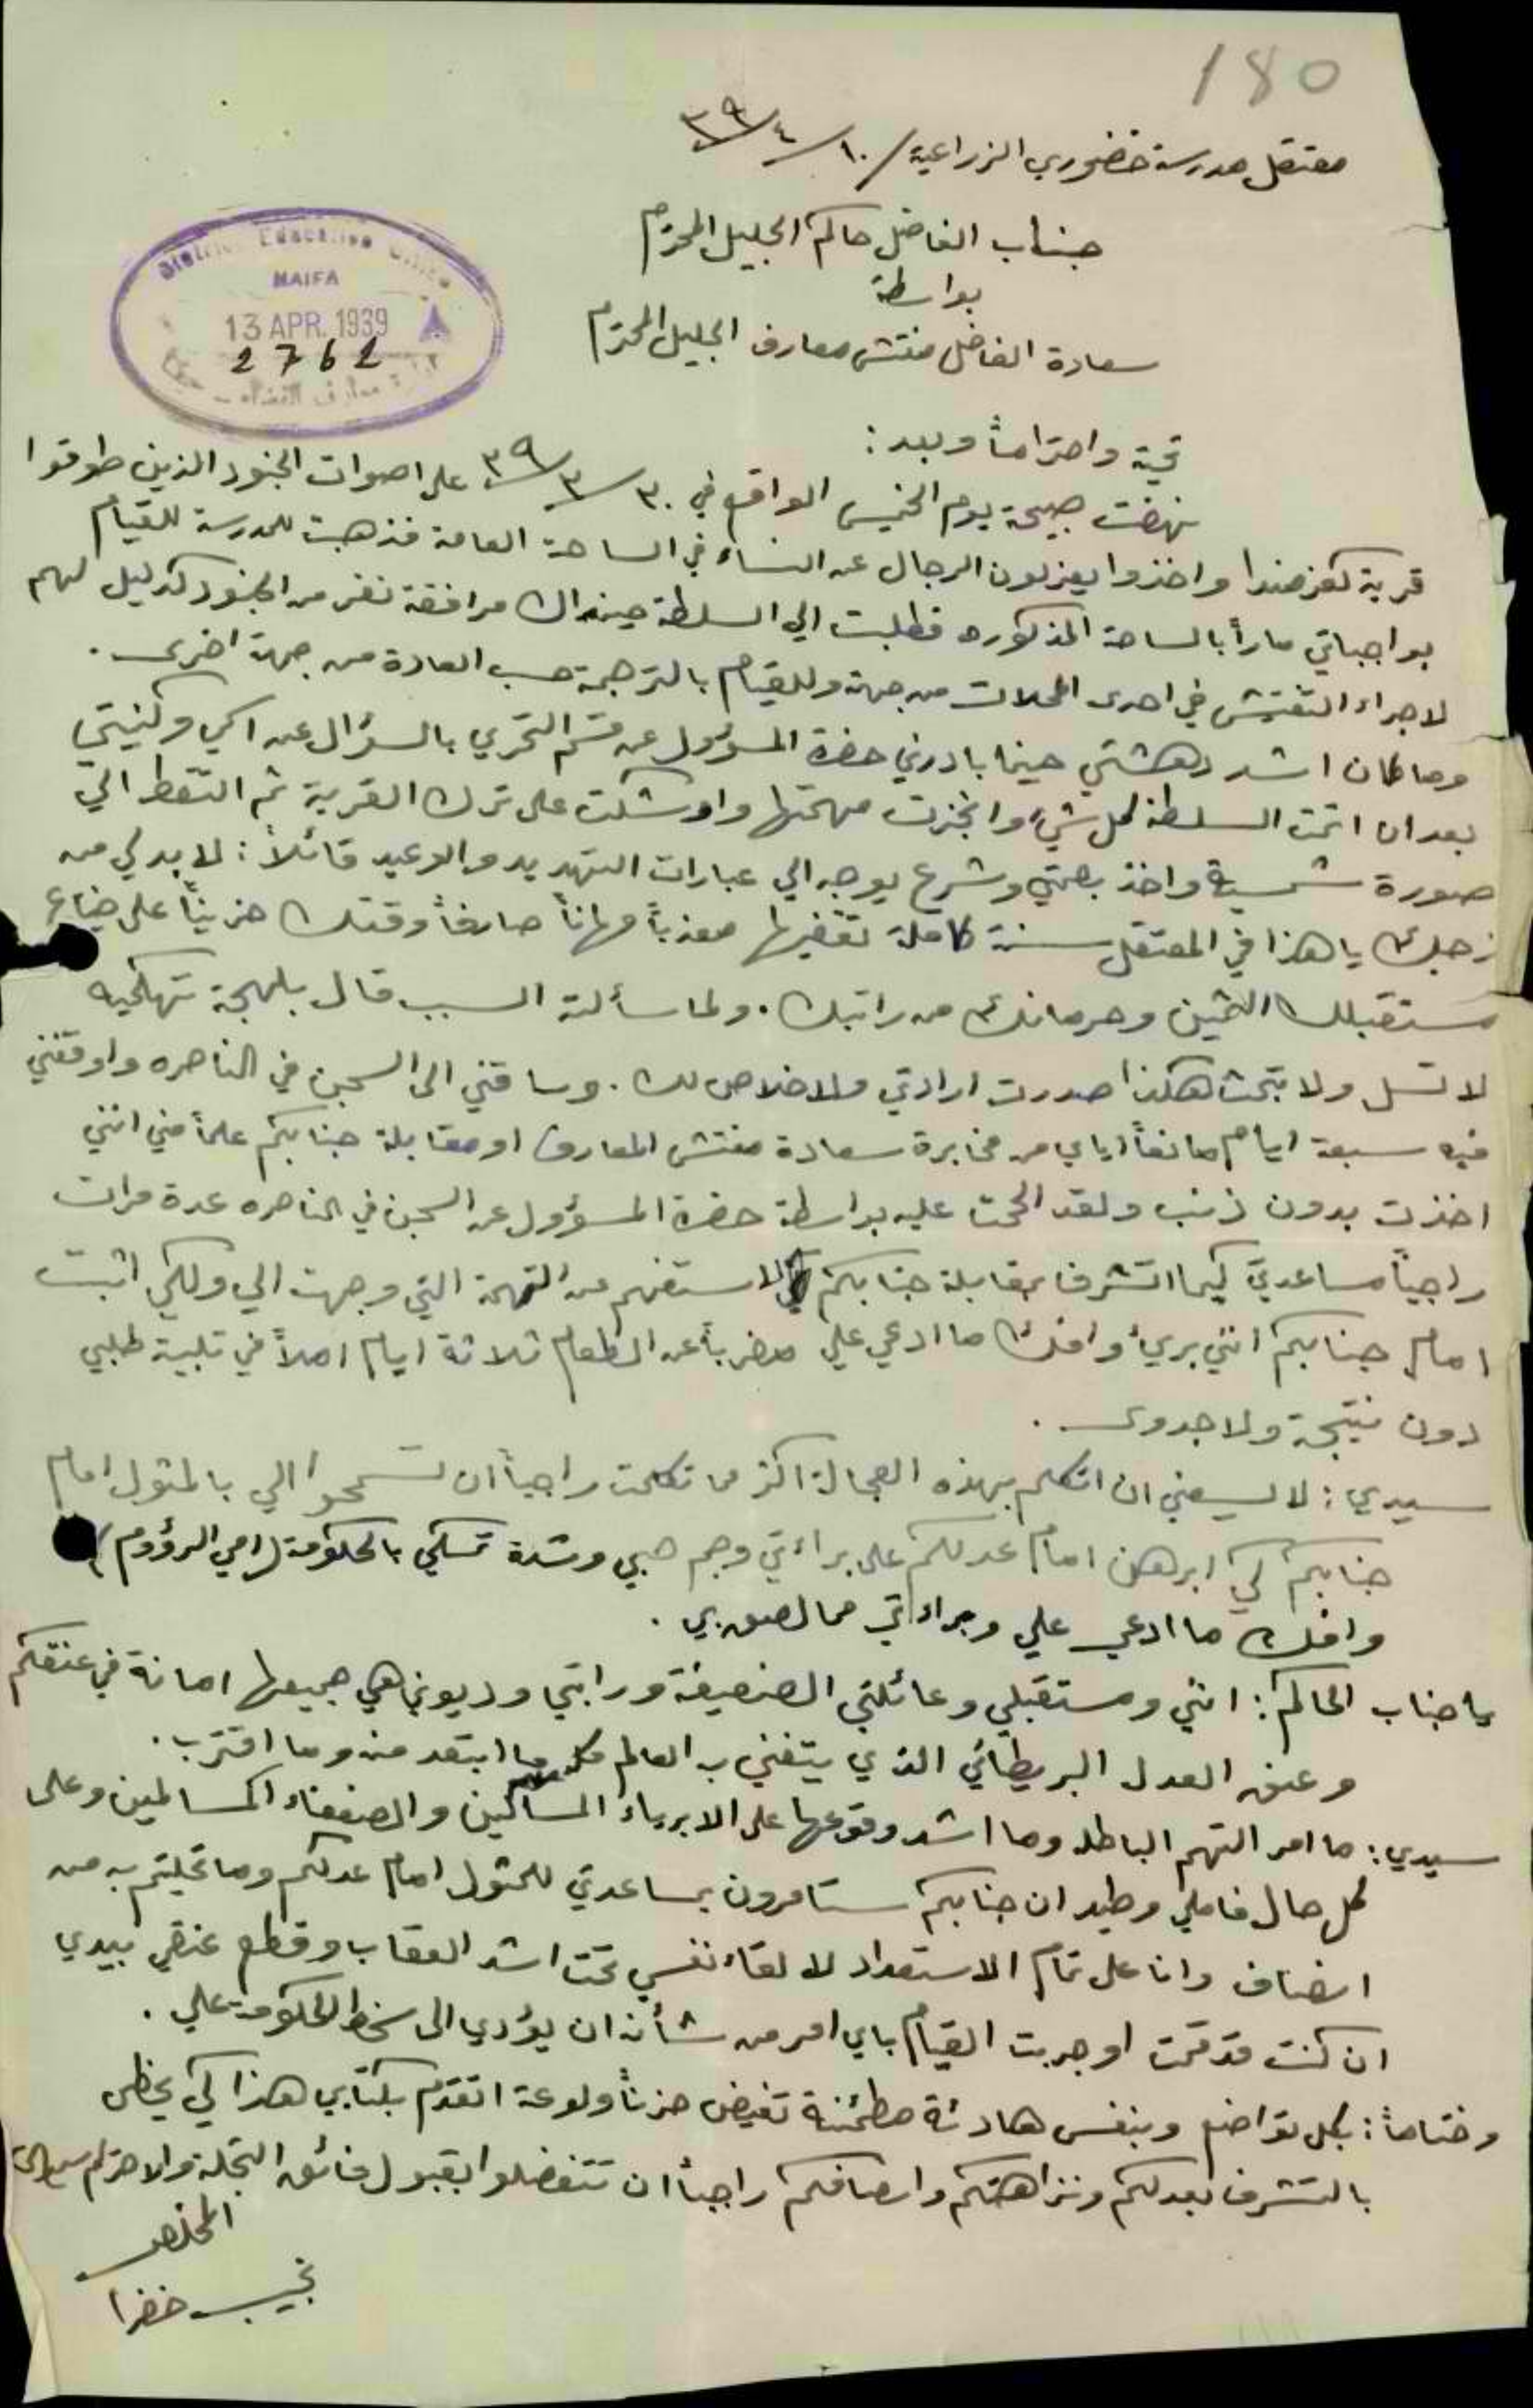 180
معتقل مدرسة خضوري الزراعية / ١٠/٤/٣٩
جناب الفاضل حاكم الجليل المحترم
بواسطة
سعادة الفاضل مفتش معارف الجليل المحترم
District Education Office
HAIFA
13 APR. 1939
2762
معارف القضاء
تحية واحتراماً وبعد:
نهضت صبيحة يوم الخميس الواقع في ٣٠/٣/٣٩ على اصوات الجنود الذين طوقوا
قرية كفرمندا واخذوا يعزلون الرجال عن النساء في الساحة العامة فذهبت للمدرسة للقيام
بواجباتي ماراً بالساحة المذكوره فطلبت الي السلطة حينذاك مرافقة نفر من الجنود كدليل لهم
لاجراء التفتيش في احدى المحلات من جهة وللقيام بالترجمة حسب العادة من جهة اخرى.
وما كان اشد دهشتي حينما بادرني حضرة المسؤول عن قسم التحري بالسؤال عن اسمي وكنيتي
بعد ان اتمت السلطة كل شيء وانجزت مهمتها واوشكت على ترك القرية ثم التقط الي
صورة شمسية واخذ بصمتي وشرع يوجه الي عبارات التهديد والوعيد قائلاً: لا بد لي من
زجك يا هذا في المعتقل سنة كاملة تقضيها معذباً مهاناً صارفاً وقتك حزيناً على ضياع
مستقبلك الثمين وحرمانك من راتبك. ولما سألته السبب قال بلهجة تهكميه
لا تسل ولا تبحث هكذا صدرت ارادتي ولا خلاص لك. وساقني الى السجن في الناصره واوقفني
فيه سبعة ايام مانعاً اياي من مخابرة سعادة مفتش المعارف او مقابلة جنابكم علماً مني انني
اخذت بدون ذنب ولقد الححت عليه بواسطة حضرة المسؤول عن السجن في الناصره عدة مرات
راجياً مساعدتي كيما اتشرف بمقابلة جنابكم لاستفهم عن التهمة التي وجهت الي ولكي اثبت
امام جنابكم انني بريء وافند ما ادعي علي مضرباً عن الطعام ثلاثة ايام املاً في تلبية طلبي
دون نتيجة ولا جدوى.
سيدي: لا يسعني ان اتكلم بهذه العجالة اكثر مما تكلمت راجياً ان تسمحوا الي بالمثول امام
جنابكم كي ابرهن امام عدلكم على براءتي وجم حبي وشدة تمسكي بالحكومة (امي الرؤوم)
وافند ما ادعي علي وبراءتي مما لصق بي.
يا جناب الحاكم: انني ومستقبلي وعائلتي الضعيفة وراتبي وديوني هي جميعها امانة في عنقكم
وعنق العدل البريطاني الذي يتغنى به العالم ما ابتعد منه وما اقترب.
سيدي: ما امر التهم الباطله وما اشد وقوعها على الابرياء المساكين والضعفاء المسالمين وعلى
كل حال فاملي وطيد ان جنابكم ستامرون بمساعدتي للمثول امام عدلكم وما تحليتم به من
انصاف وانا على تمام الاستعداد لالقاء نفسي تحت اشد العقاب وقطع عنقي بيدي
ان كنت قد قمت او جربت القيام باي امر من شأنه ان يؤدي الى سخط الحكومة علي.
وختاماً: بكل تواضع وبنفس هادئة مطمئنة تفيض حزناً ولوعة اتقدم بكتابي هذا كي يحظى
بالتشرف بعدلكم ونزاهتكم وانصافكم راجياً ان تتفضلوا بقبول فائق التجلة والاحترام سيدي
المخلص
نجيب خضرا